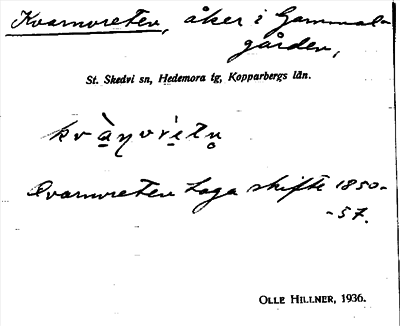 Kvarnvreten, åker i Gammal-
gården,
St. Skedvi sn, Hedemora tg, Kopparbergs län.
kvà̱ŋvri̱tn̥
Qvarnvreten Laga skifte 1850-
-57.
OLLE HILLNER, 1936.